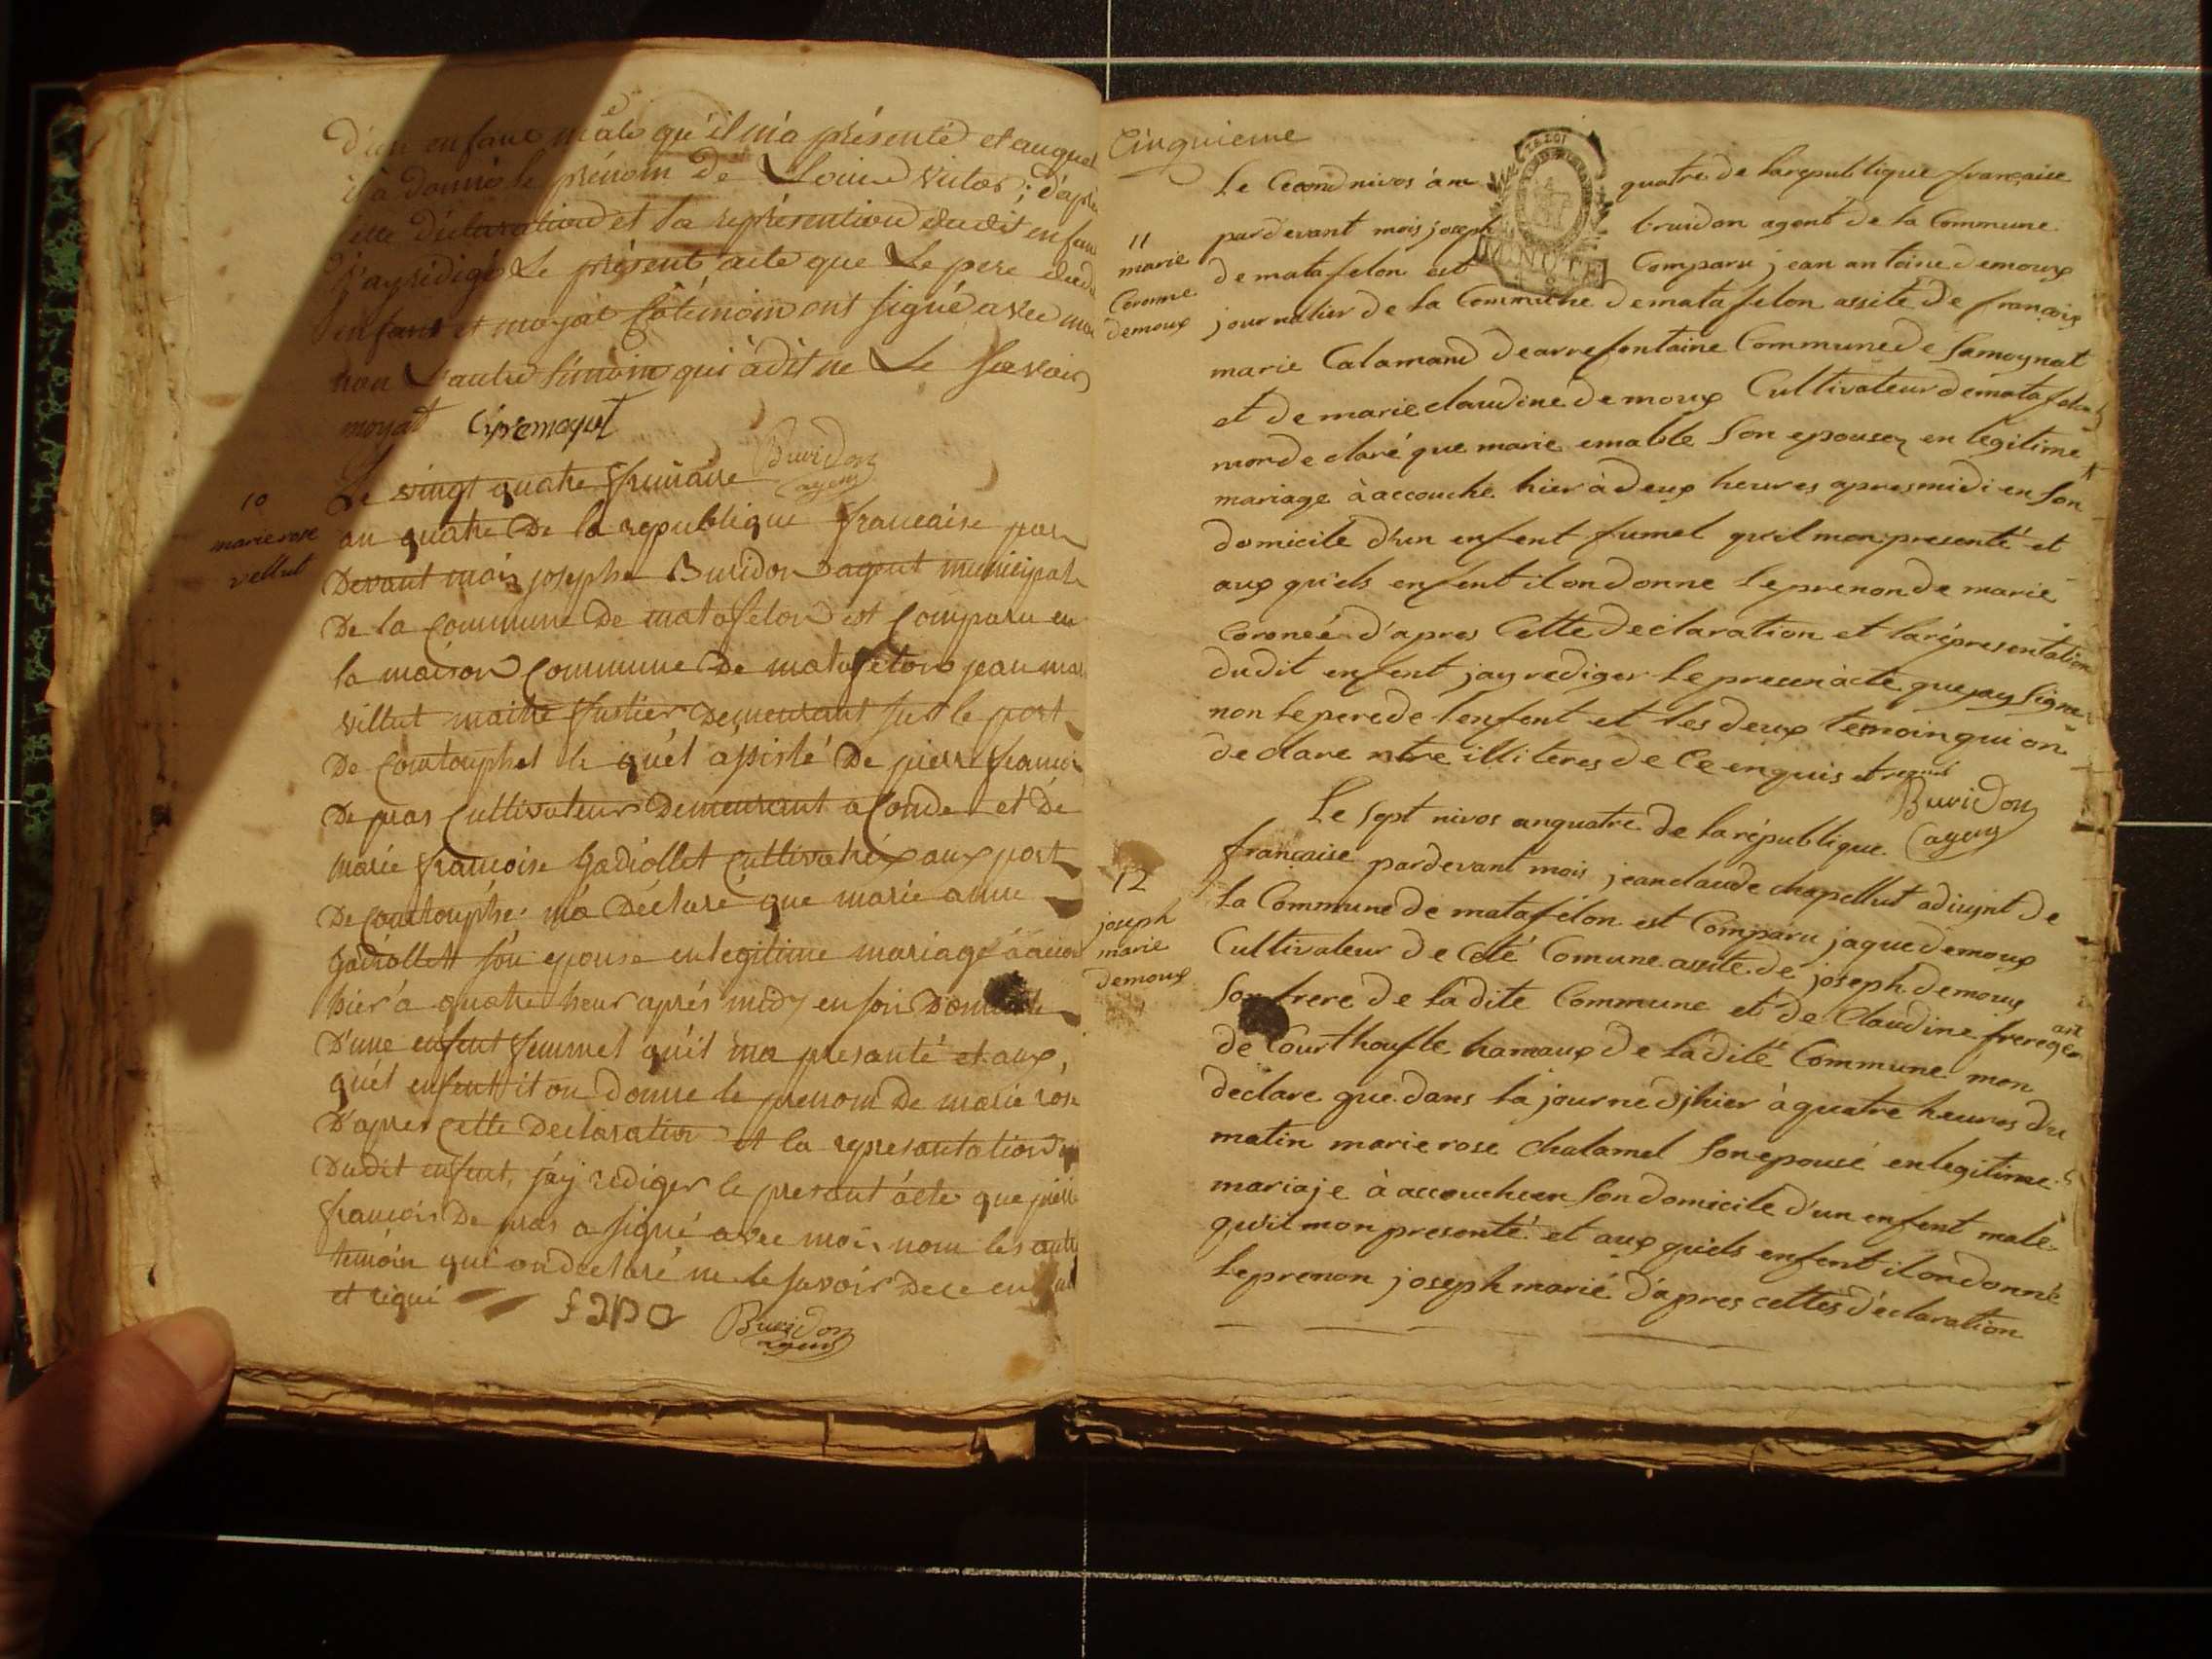 D'un enfant mâle qu'il m'a présenté et auquel
il a donné le prénom de Louis victor ; d'après
cette déclaration et la représention dudit enfan
j'ay rédigé Le présent acte que Le pere dud
enfant et moyat Cotémoin ont signé avec moi
non L'autre témoin qui a dit ne Le savoir
moyat
Buridon
agent
10
marie rose
vellut
Le vingt quatre frimaire
an quatre De la republique francaise par
Devant mois josephe Buridon agent municipal
De la commune De matafelon est comparu en
la maison commune De matafelon jean mar
villut maitre Demeurant sur le port
De Courtouphet le quel assisté De pierre francoi
De pras cultivateur Demeurant a Conde et De
marie francoise Gadiollet cultivatrix aux port
De Courtouphe: m'a Déclaré que marie anne
Gadiollet son epouse en legitime mariage a accou
hier a quatre heur aprés midy en son Domicile
D'une enfent femmel quil ma presanté et aux
quél enfent it on donne le prenom De marie rose
D'apres cette Declaration et la represantation
Dudit enfent, j'ay rediger le presant acte que pierre
francois De pras a signé avec moi, nom les autre
temoin qui on declaré ne le savoir De ce en
et riqui
Buridon
agent
Cinquieme
Le Cecond nivos an quatre de la republique française
11
marie
Coronne
demoux
par devant mois joseph bruidon agent de la Commune
MINUTE
de matafelon est Comparu jean antoine demoux
journalier de la Commune de matafelon assité de françois
marie Calamand de arrefontaine Commune de Samoynat
et de marie claudine demoux Cultivateur de matafelon
mon declaré que marie emable Son epousez en legitime
mariage à accouché hier à deux heures apres midi en Son
domicile d'un enfent fumel quil mon presenté et
aux quiels enfent il on donne le prenon de marie
Coroneé d'apres Cette declaration et la répresentation
dudit enfent jay rediger le presen acte que jay Signe
non le pere de lenfent et les deux temoin qui on
declare nètre illiteres de Ce enquis et requis
Buridon
agent
Le Sept nivos an quatre de la république
12
joseph
marie
demoux
française pardevant mois jean claude chapellut adiujnt de
la Commune de matafélon est Comparu jaque demoux
Cultivateur de Cété Comune assité de joseph demoux
Son frere de ladite Commune et de Claudine frereger
de Courthoufle hamaux de la dité Commune mon
declare que dans la journé djhier à quatre heures du
matin marie rose chalamel Son epousé en legitime
mariaje à accouche en Son domicile d'un enfent male
qu'il mon presenté et aux quiels enfent il on donné
le prenon joseph marié d'apres cettes déclaration